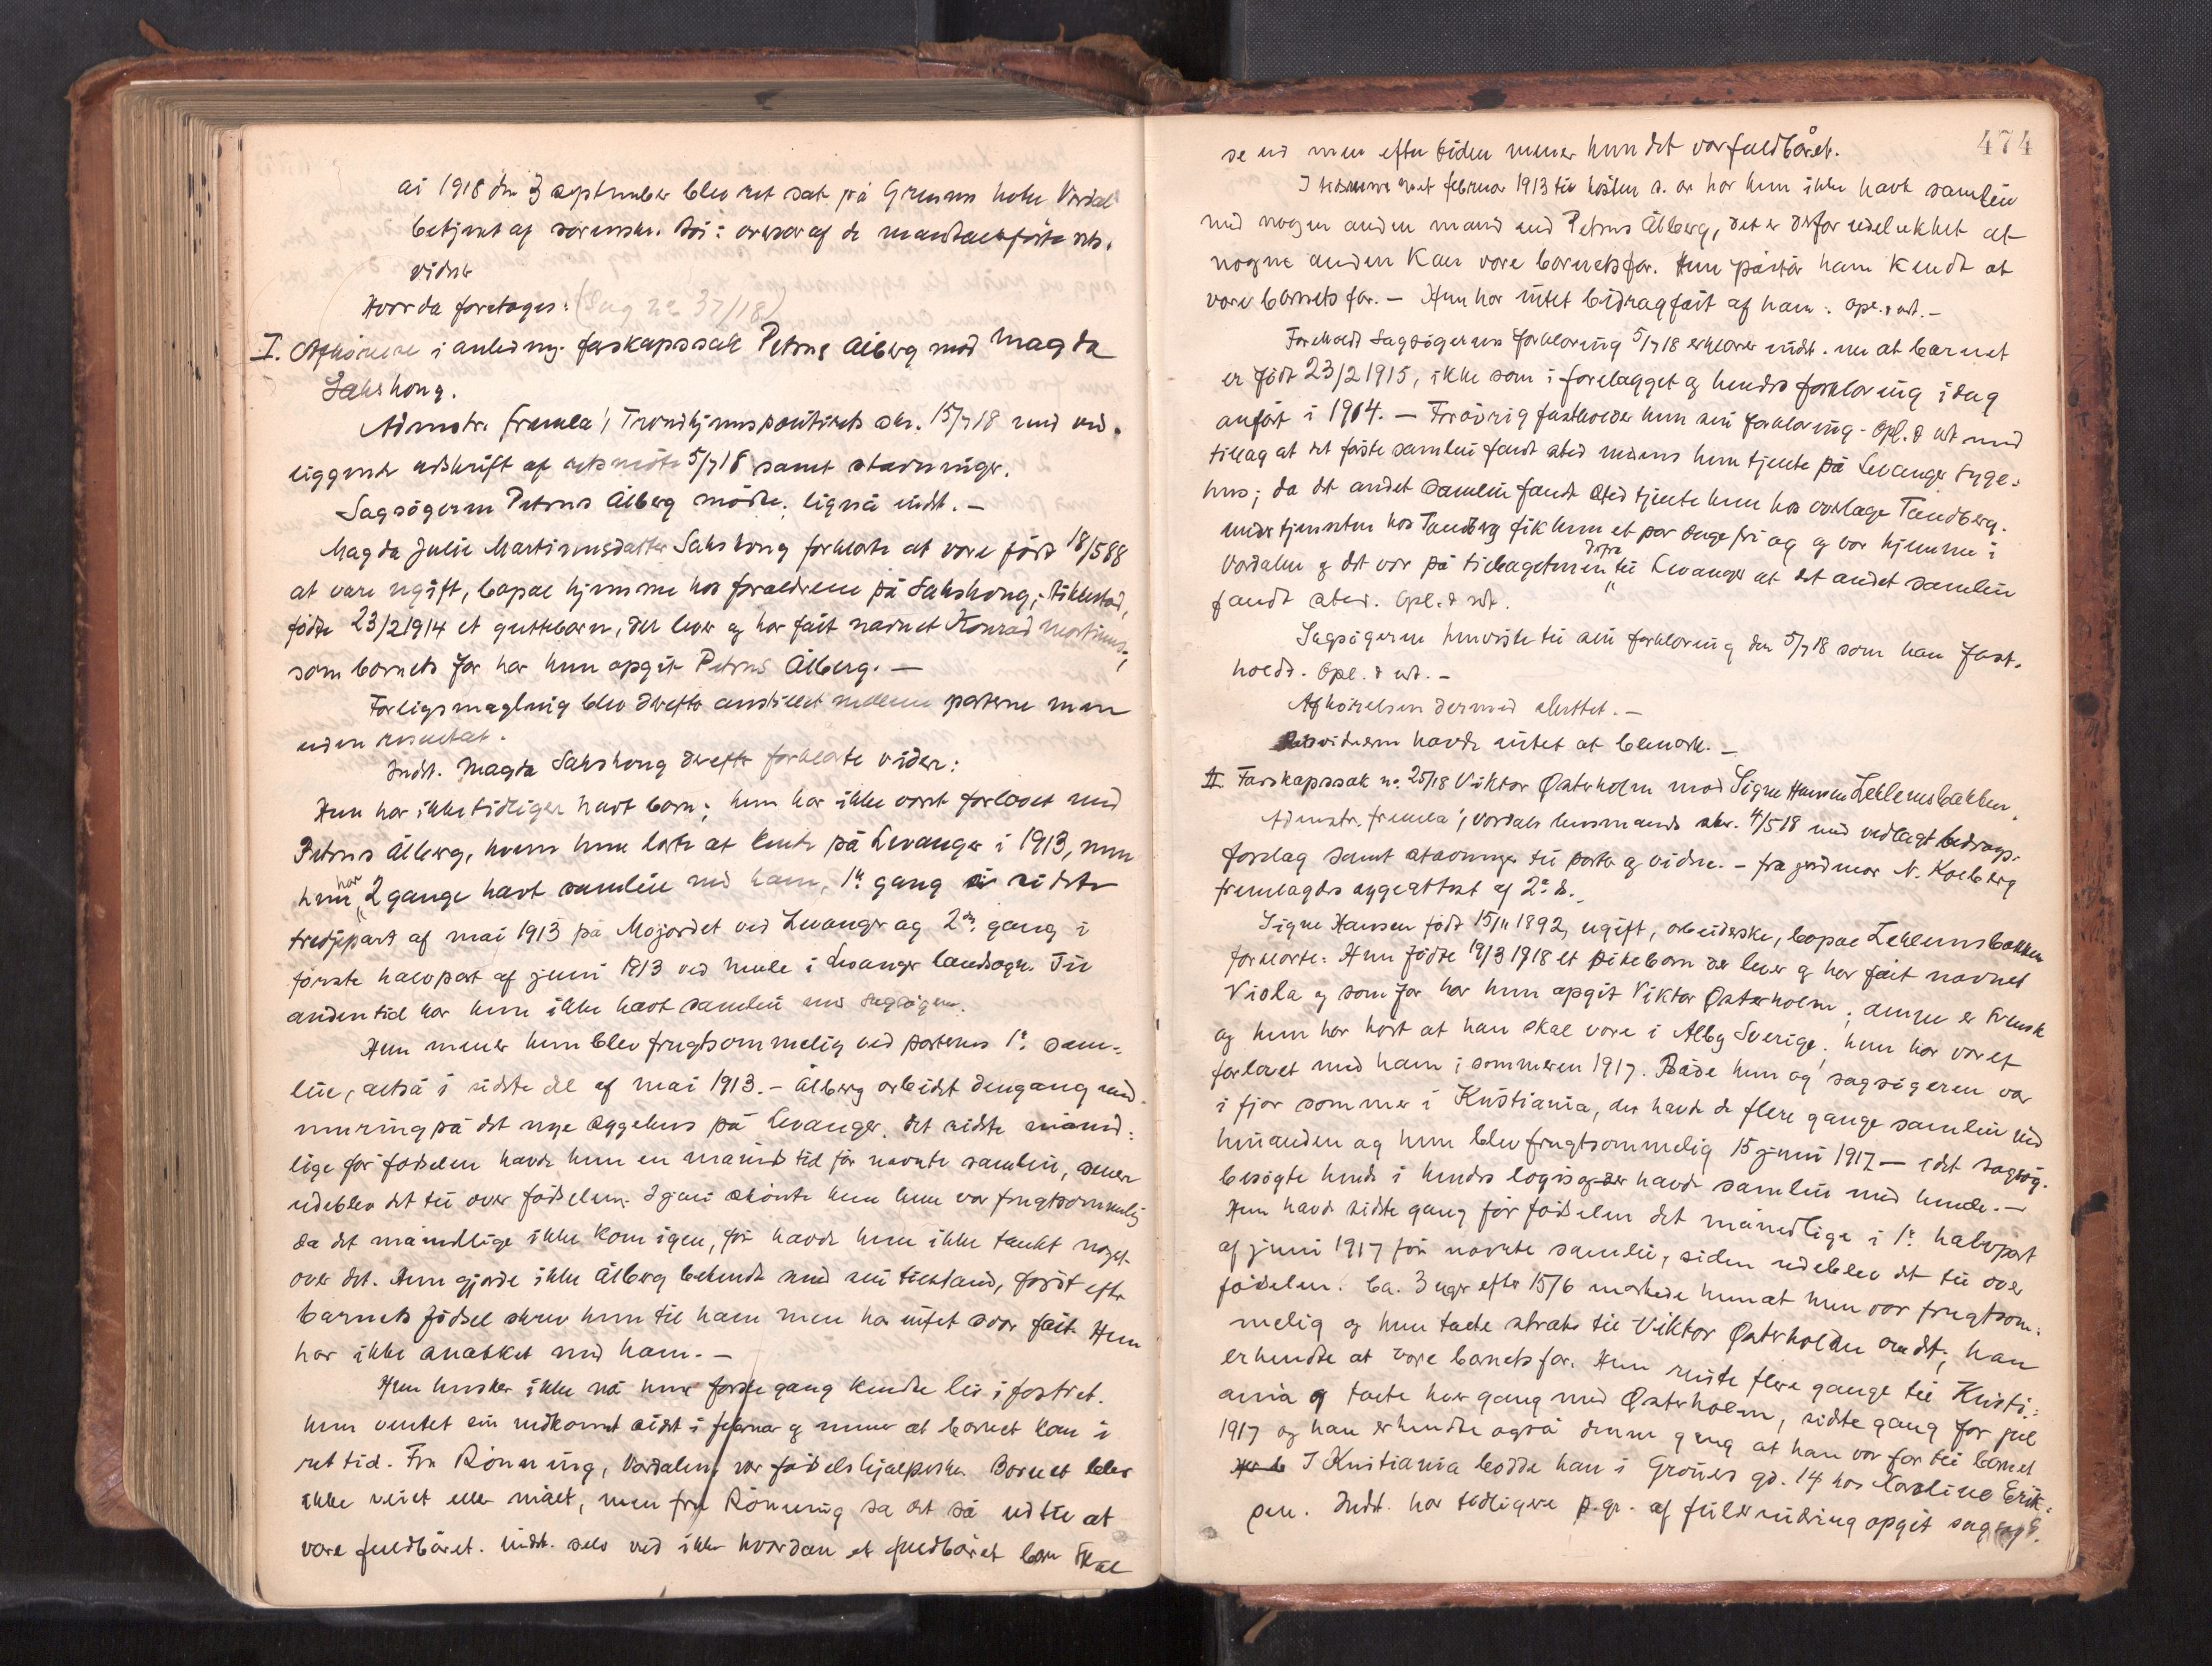 år 1918 den 3 september blev ret sat på Grenns hotel Værdal
betjent af sorenskr. Bøi: overvær af de mandtalsførte rets-
vidner
Hvorda foretoges: (Sag no 37/18)
I. Afhörelse i anledning farskapssak Petrus Ålberg mod Magda
Sakshaug.
Admstr. fremla: Trondhjems politirets skr. 15/7 18 med ved-
liggende udskrift af retsmöte 5/7 18 samt stævninger.
Sagsögeren Petrus Ålberg mödte, ligeså indst. –
Magda Julie Martinusdatter Sakshaug forklarte at være född 18/5 88
at være ugift, bopæl hjemme hos forældrene på Sakshaug, Stiklestad,
födte 23/2 1914 et guttebarn, der lever og har fåit navnet Konrad Martinus,
som barnets far har hun opgit Petrus Ålberg. –
Forligsmægling blev derefter anstillet mellem parterne men
uden resultat.
Indst. Magda Sakshaug derefter forklarte videre:
Hun har ikke tidligere havt barn; hun har ikke vært forlovet med
Petrus Ålberg, hvem hun lærte at kende på Levanger i 1913, men
hun har 2 gange havt samleie med ham, 1ste gang i sidste
tredjepart af mai 1913 på Mojordet ved Levanger og 2den gang i
förste halvpart af juni 1913 ved Mule i Levanger landsogn. Til
anden tid har hun ikke havt samleie med sagsögeren.
Hun mener hun blev frugtsommelig ved parternes 1ste sam-
leie, altså i sidste del af mai 1913. – Ålberg arbeidet dengang med
muring på det nye sygehus på Levanger. Det sidste måned-
lige før födselen havde hun en måneds tid før nævnte samleie, senere
udeblev det til over födselen. I juni skönte hun hun var frugtsommelig
da det månedlige ikke kom igen, för havde hun ikke tænkt noget
over det. Hun gjorde ikke Ålberg bekendt med sin tilstand, först efter
barnets födsel skrev hun til ham men har intet svar fåit. Hun
har ikke snakket med ham. –
Hun husker ikke nå hun förste gang kendte liv i fostret.
Hun ventet sin nedkomst sidst i februar og mener at barnet kom i
ret tid. Fru Rönning, Værdalen, var födselshjælperske. Barnet blev
ikke veiet eller målt, men fru Rönning sa det så ud til at
være fuldbåret. Indst. selv ved ikke hvordan et fuldbåret barn skal
474
se ud men efter tiden mener hun det var fuldbåret.
I tidsrummet februar 1913 til hösten s. år har hun ikke havt samleie
med nogen anden mand end Petrus Ålberg, det er derfor udelukket at
nogen anden kan være barnets far. Hun påstår ham kendt at
være barnets far. – Hun har intet bidrag fåit af ham. Opl. & vedt. –
Foreholdt sagsögerens forklaring 5/7 18 erklærer indst. nu at barnet
er födt 23/2 1915, ikke som i forelægget og hendes forklaring idag
anfört i 1914. – Forövrig fastholder hun sin forklaring. Opl. & vedt. med
tillæg at det förste samleie fandt sted mens hun tjente på Levanger syge-
hus; da det andet samleie fandt sted tjente hun hos overlæge Tandberg.
Under tjenesten hos Tandberg fik hun et par dage fri og var hjemme i
Værdalen og det var på tilbageturen derfra til Levanger at det andet samleie
fandt sted. Opl. & vedt.
Sagsögeren henviste til sin forklaring den 5/7 18 som han fast-
holdt. Opl. & vedt. –
Afhörelsen dermed sluttet. –
Retsvidnerne havde intet at bemærke. –
II. Farskapssak no 25/18 Viktor Østerholm mod Signe Hansen Leklemsbakken.
Admstr. fremla: Værdals lensmands skr. 4/5 18 med vedlagt bidrags-
forelæg samt stævninger til parter og vidne. – fra jordmor N. Kolberg
fremlagdes sygeattest af 2 ds.
Signe Hansen födt 15/11 1892, ugift, arbeiderske, bopæl Leklemsbakken
forklarte: Hun födte 19/3 1918 et pikebarn der lever og har fåit navnet
Viola og som far har hun opgit Viktor Østerholm; denne er svensk
og hun har hört at han skal være i Alby Sverige; hun har været
forlovet med ham i sommeren 1917. Både hun og sagsögeren var
i fjor sommer i Kristiania, der havde de flere gange samleie med
hinanden og hun blev frugtsommelig 15 juni 1917 – idet sagsög.
besögte hende i hendes logis og der havde samleie med hende. –
Hun havde sidste gang før födselen det månedlige i 1ste halvpart
af juni 1917 för nævnte samleie, siden udeblev det til over
födselen. Ca. 3 uger efter 15/6 mærkede hun at hun var frugtsom-
melig og hun talte straks til Viktor Østerholm om det; han
erkendte at være barnets far. Hun reiste flere gange til Kristi-
ania og talte hver gang med Østerholm, sidste gang før jul
1917 og han erkendte også denne gang at han var far til barnet
I Kristiania bodde han i Grönlds gd. 14 hos Karoline Erik-
sen. Indst. har tidligere p. gr. af fuld rådning opgit sagsög.